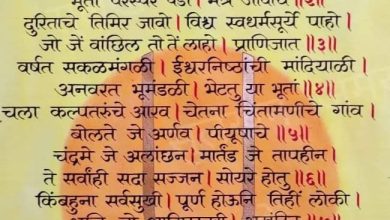 भूतां परस्परें पडो । मैत्र जीवांचे ॥२॥
दुरिताचे तिमिर जावो । विश्व स्वधर्मसूर्ये पाहो ।
जो जें वांछिल तो तें लाहो । प्राणिजात ॥३॥
वर्षत सकळमंगळी । ईश्वरनिष्ठांची मांदियाळी ।
अनवरत भूमंडळी । भेटतु या भूतां ॥४॥
चला कल्पतरुंचे आरव । चेतना चिंतामणीचे गांव ।
बोलते जे अर्णव । पीयूषाचे ॥५॥
चंद्रमे जे अलांछन । मार्तंड जे तापहीन ।
ते सर्वांही सदा सज्जन । सोयरे होतु ॥६॥
किंबहुना सर्वसुखी । पूर्ण होऊनि तिहीं लोकी ।